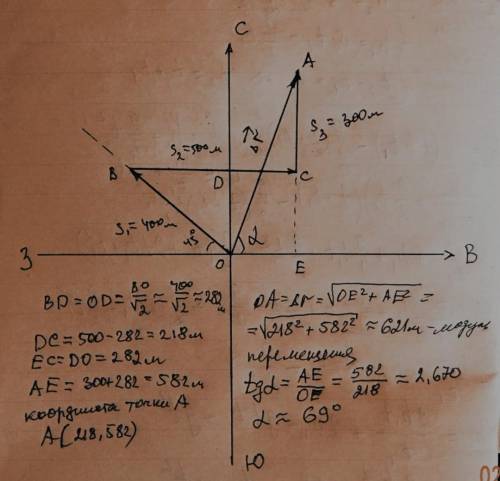 С
A
S₃ = 300м
Δr
S₂=500м
B
D
C
S₁=400м
45°
α
З
O
E
В
BD=OD= BO/√2 ≈ 400/√2 ≈ 282м
DC=500-282=218м
EC=DO=282м
AE=300+282=582м
координата точки A
A(218,582)
OA=Δr=√OE²+AE² =
=√218²+582² ≈ 621м-модуль
перемещения
tgα = AE/OE = 582/218 ≈ 2,670
α ≈ 69°
Ю
02